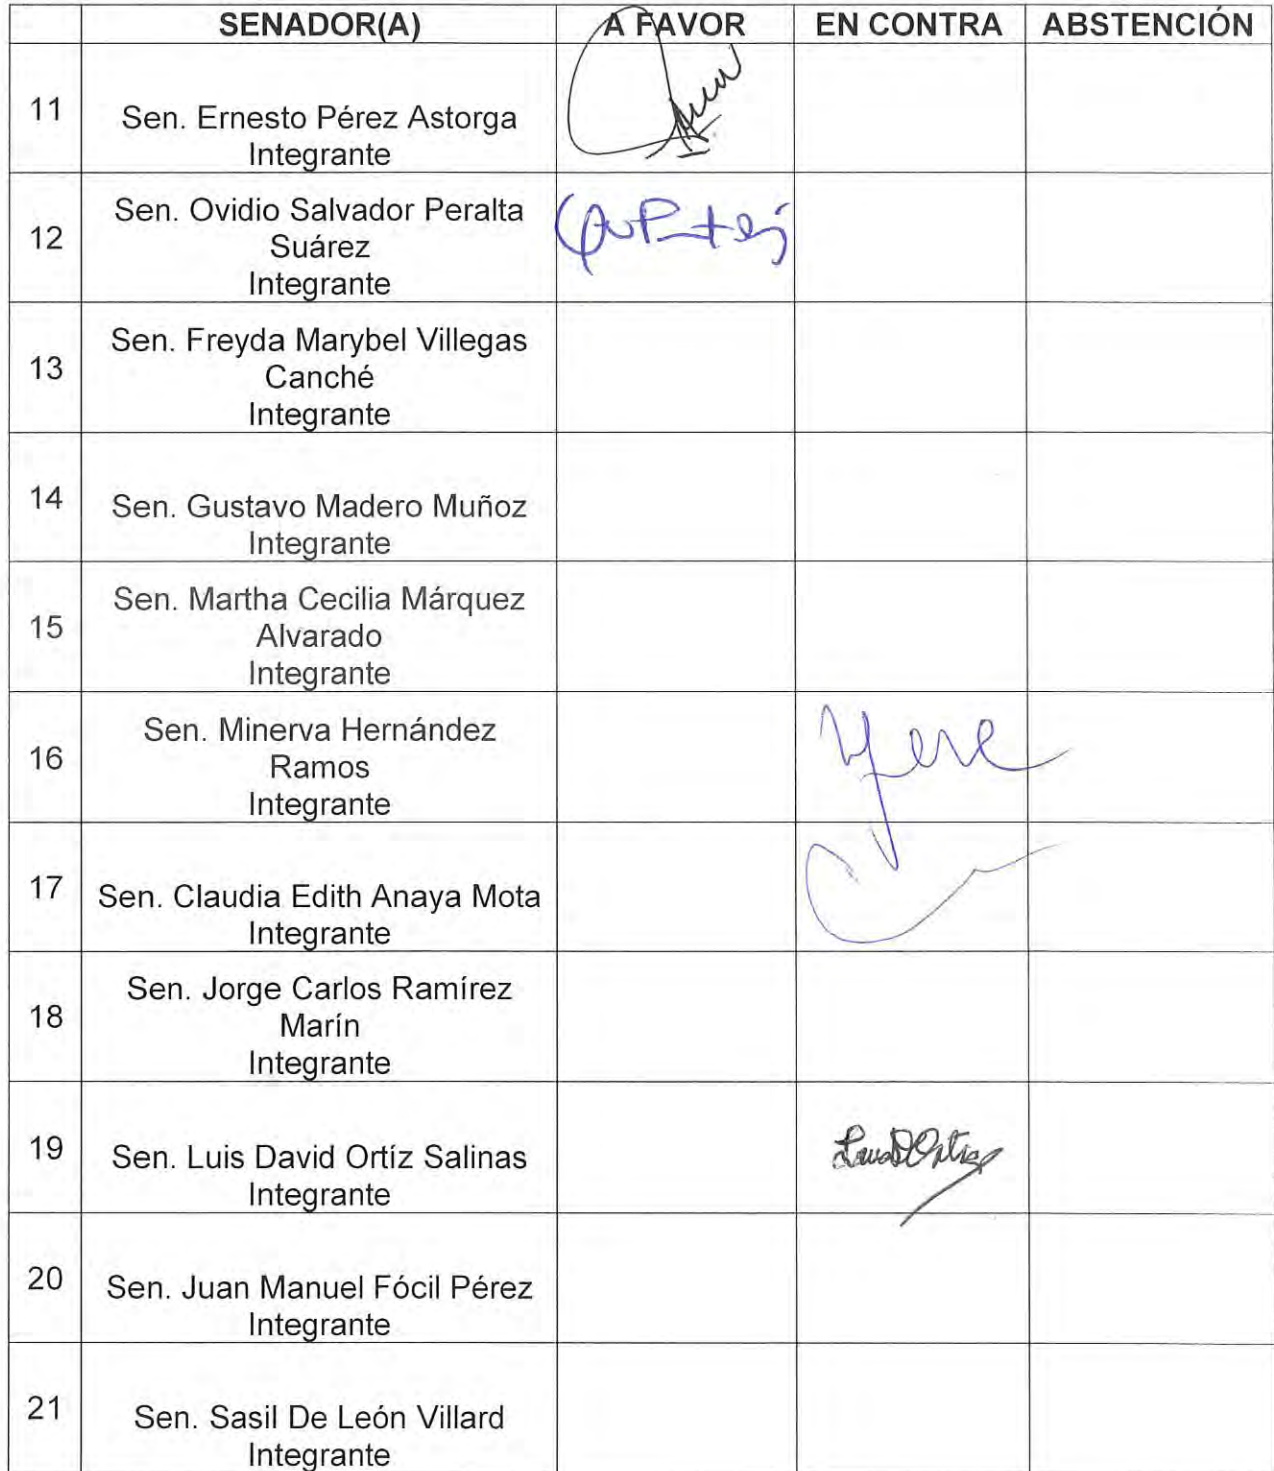 SENADOR(A) A FAVOR EN CONTRA ABSTENCIÓN
11 Sen. Ernesto Pérez Astorga
Integrante
12 Sen. Ovidio Salvador Peralta
Suárez
Integrante
13 Sen. Freyda Marybel Villegas
Canché
Integrante
14 Sen. Gustavo Madero Muñoz
Integrante
15 Sen. Martha Cecilia Márquez
Alvarado
Integrante
16 Sen. Minerva Hernández
Ramos
Integrante
17 Sen. Claudia Edith Anaya Mota
Integrante
18 Sen. Jorge Carlos Ramírez
Marín
Integrante
19 Sen. Luis David Ortíz Salinas
Integrante
20 Sen. Juan Manuel Fócil Pérez
Integrante
21 Sen. Sasil De León Villard
Integrante